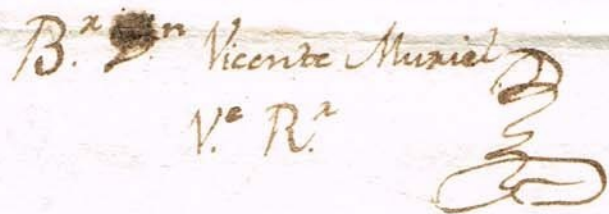 B.r D.n Vicente Muriel
V.e R.r